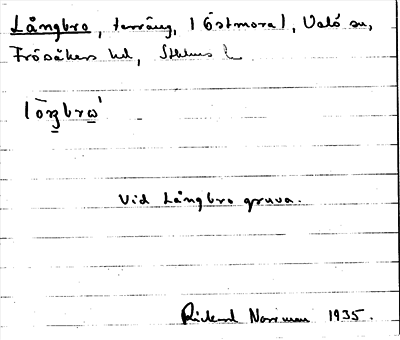 Långbro, terräng, i Östmora l, Valö sn,
Frösåkers hd, Sthlms l.
Vid Långbro gruva.
Rickard Norrman 1935.